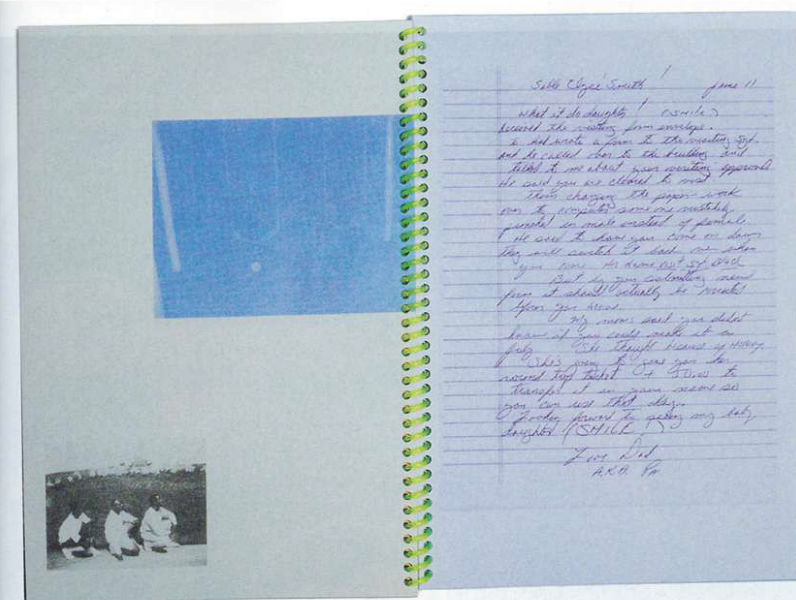 Sable Elyse Smith! June 11
What it do daughter! (Smile)
Received the visiting form envelope.
I had wrote a form to the visiting Sgt.
And he called over to the building and
talked to me about your visiting approval.
He said you are cleared to visit
changing the paper work
over to computer some one mistakenly
punched in male instead of female.
He said to have you come on down
they will switch it back over when
you come. His name is Sgt
But by you submitting new
form it should actually be
upon you
My moms said you didnt
know if you could make it in
July. She thought because of money.
She's going to give you her
round trip ticket + 50.00 to
transfer it in your name so
you can use that
Looking forward to seeing my baby
daughter (SMILE!)
Love Dad
A.K.A. Pa